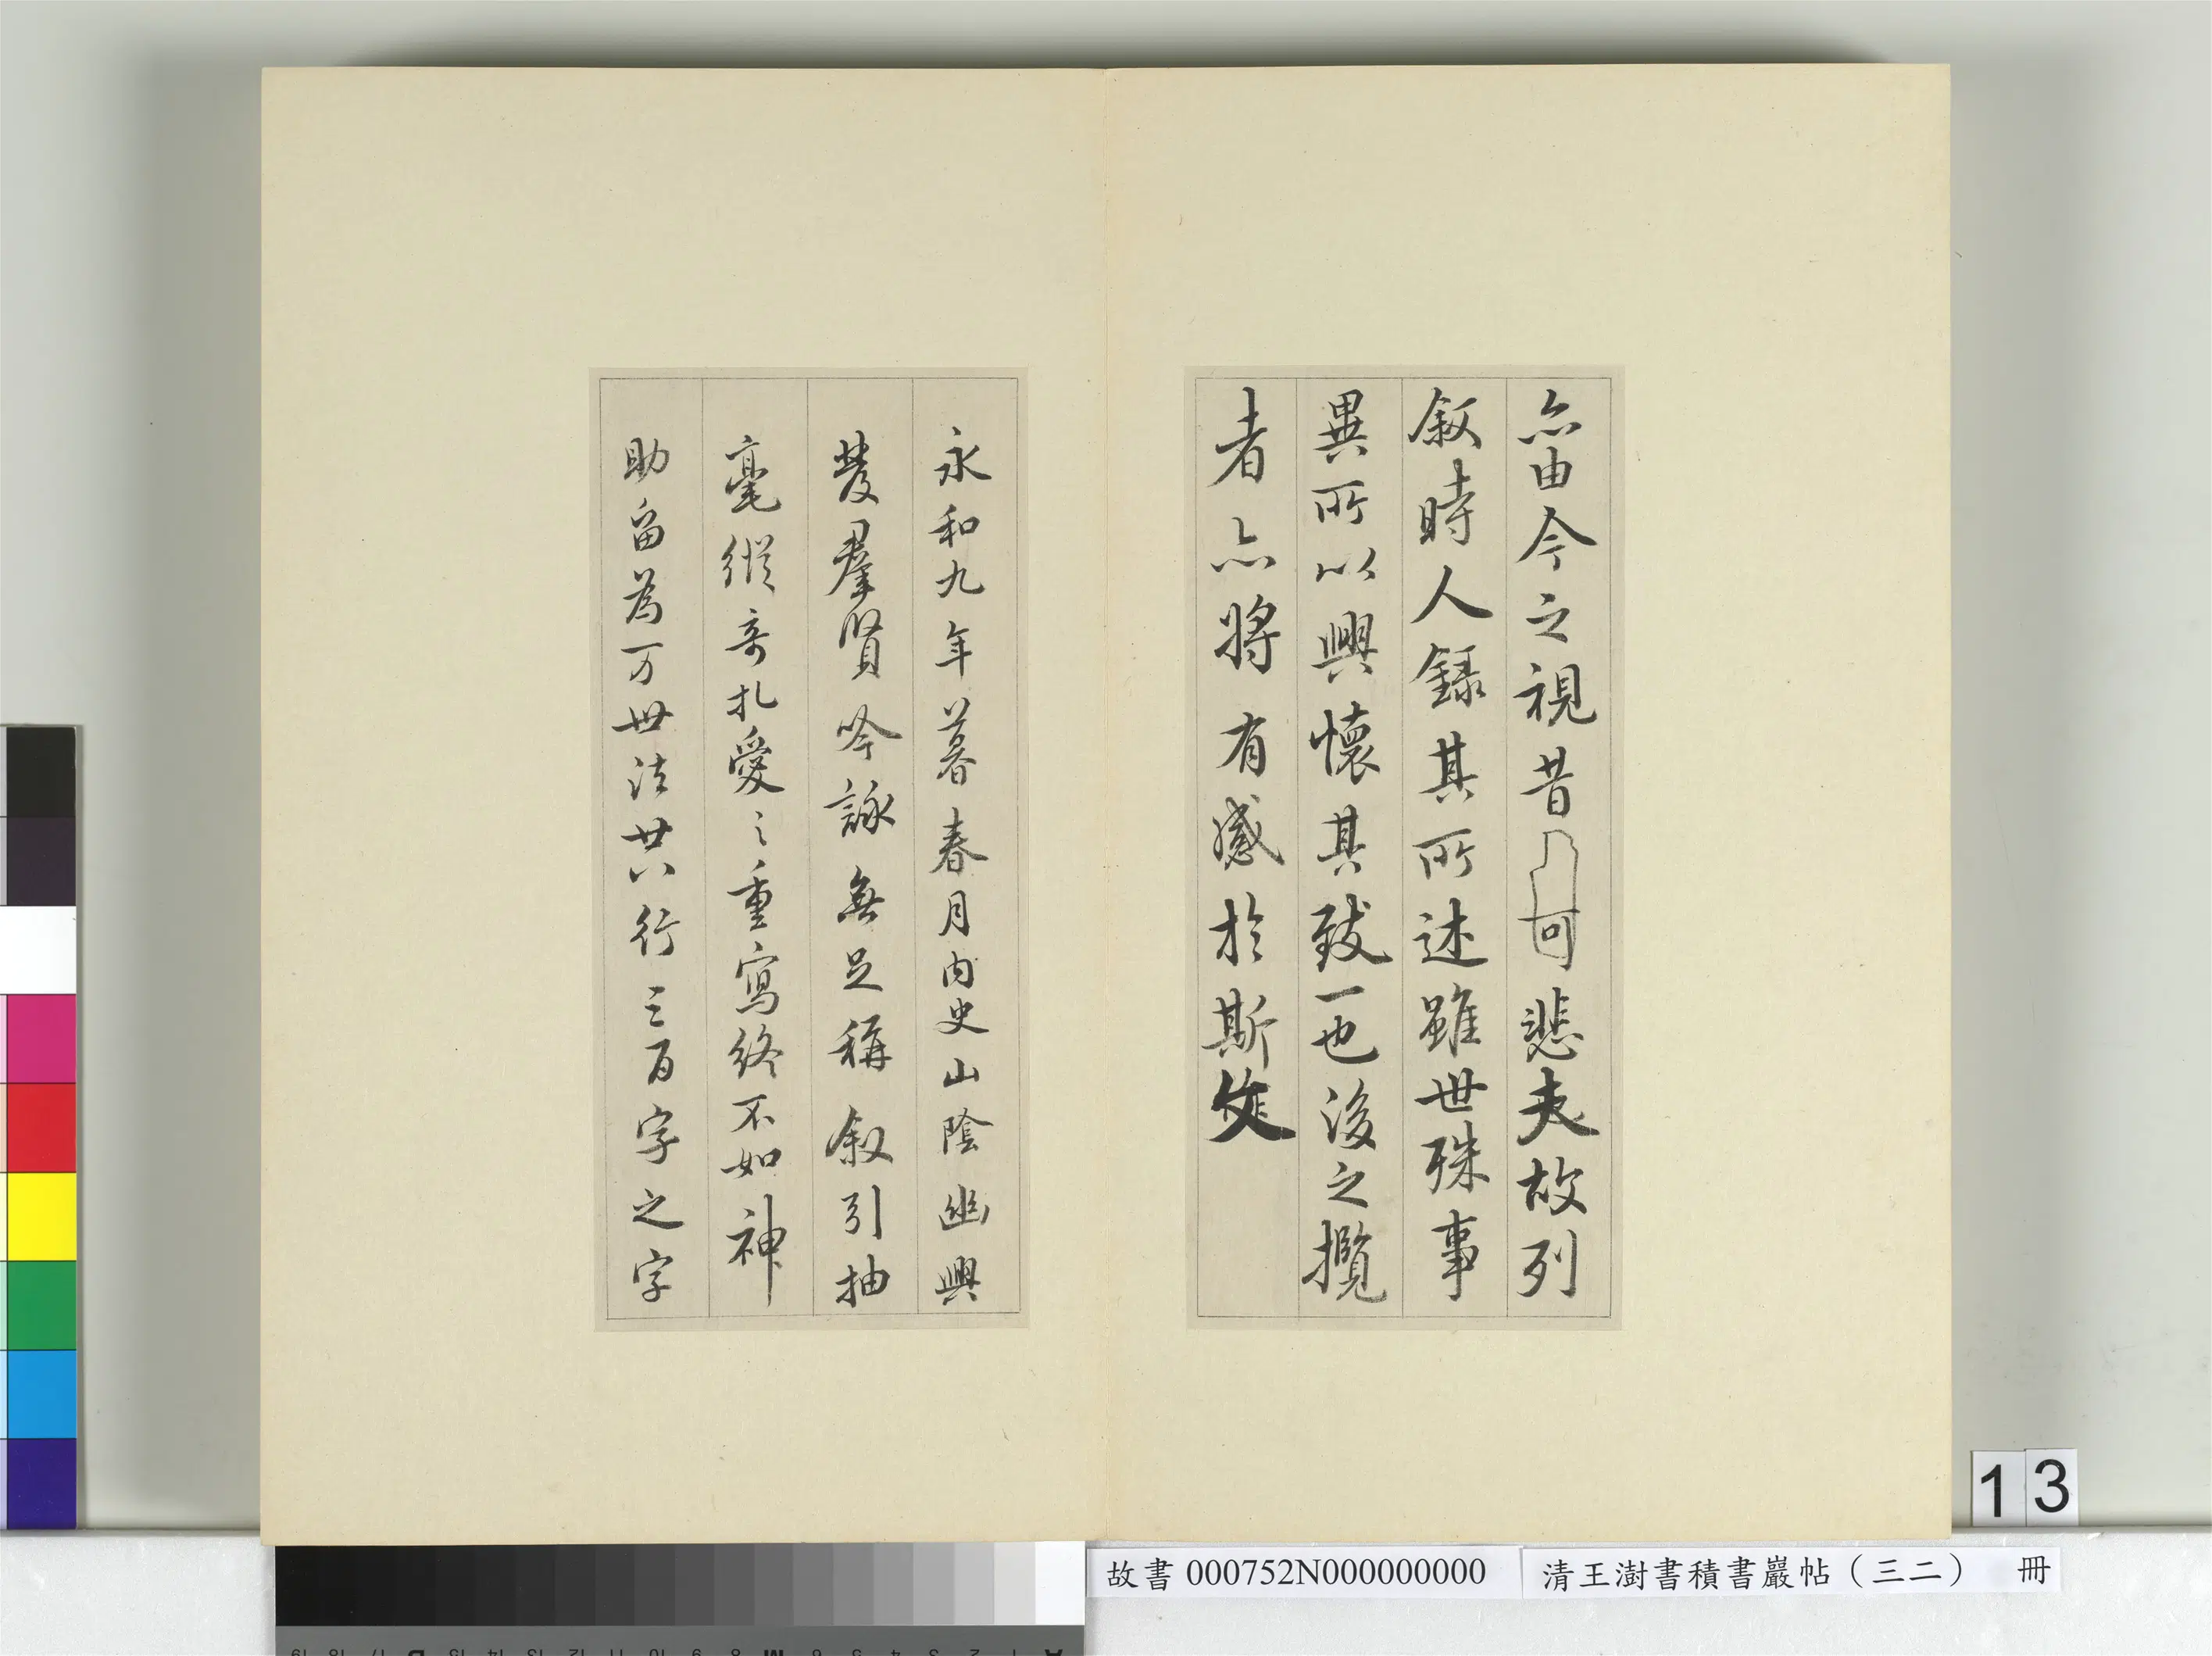 亦由今之視昔可悲夫故列
叙時人録其所述雖世殊事
異所以興懷其致一也後之攬
者亦將有感於斯文
永和九年暮春月内史山陰幽興
發羣賢吟詠無足稱叙引抽
毫縱奇札愛之重寫終不如神
助留為万世法廿八行三百字之字
13
故書 000752N000000000
清王澍書積書巖帖（三二） 冊